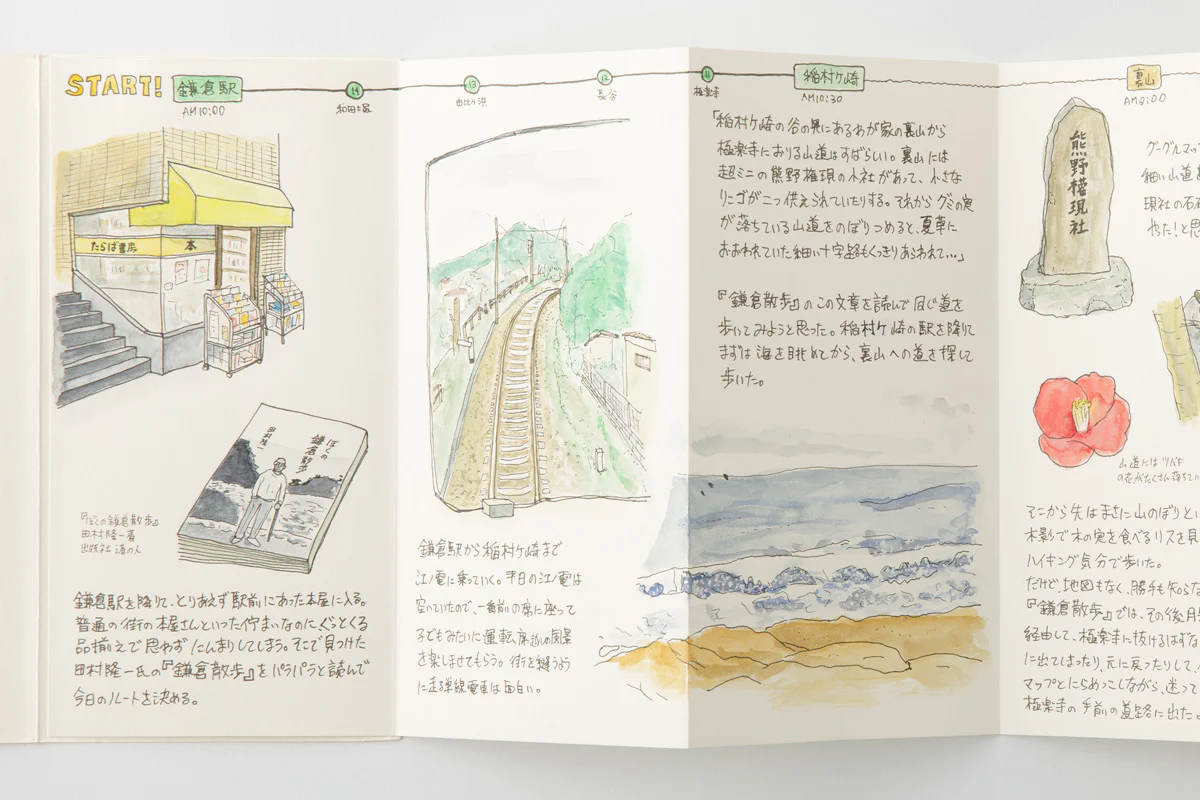 START!
鎌倉駅
AM10:00
14
和田塚
13
由比ヶ浜
12
長谷
11
極楽寺
稲村ヶ崎
AM10:30
裏山
AM9:00
たらば書房
本
ぼくの
鎌倉散歩
田村隆一
『ぼくの鎌倉散歩』
田村隆一著
出版社 港の人
鎌倉駅を降りて、とりあえず駅前にあった本屋に入る。
普通の街の本屋さんといった佇まいなのにぐっとくる
品揃えで思わずたんまりしてしまう。そこで見つけた
田村隆一氏の『鎌倉散歩』をパラパラと読んで
今日のルートを決める。
鎌倉駅から稲村ヶ崎まで
江ノ電に乗っていく。平日の江ノ電は
空いていたので、一番前の席に座って
子どもみたいに運転席越しの風景
を楽しませてもらう。街を縫うよう
に走る単線電車は面白い。
「稲村ヶ崎の谷の奥にあるわが家の裏山から
極楽寺におりる山道はすばらしい。裏山には
超ミニの熊野権現の小社があって、小さな
リンゴが二つ供えられていたりする。それからグミの実
が落ちている山道をのぼりつめると、夏草に
おおわれていた細い十字路もくっきりあらわれて…」
『鎌倉散歩』のこの文章を読んで同じ道を
歩いてみようと思った。稲村ヶ崎の駅を降りて
まずは海を眺めてから、裏山への道を探して
歩いた。
熊野権現社
グーグルマッ
細い山道を
現社の石
やった!と思
山道にはツバキ
の花がたくさん落ちてい
そこから先はまさに山のぼりとい
木影で木の実を食べるリスを見
ハイキング気分で歩いた。
だけど、地図もなく、勝手も知らな
『鎌倉散歩』では、その後月
経由して、極楽寺に抜けるはずな
に出てしまったり、元に戻ったりして、
マップとにらめっこしながら、迷って
極楽寺の手前の道路に出た。